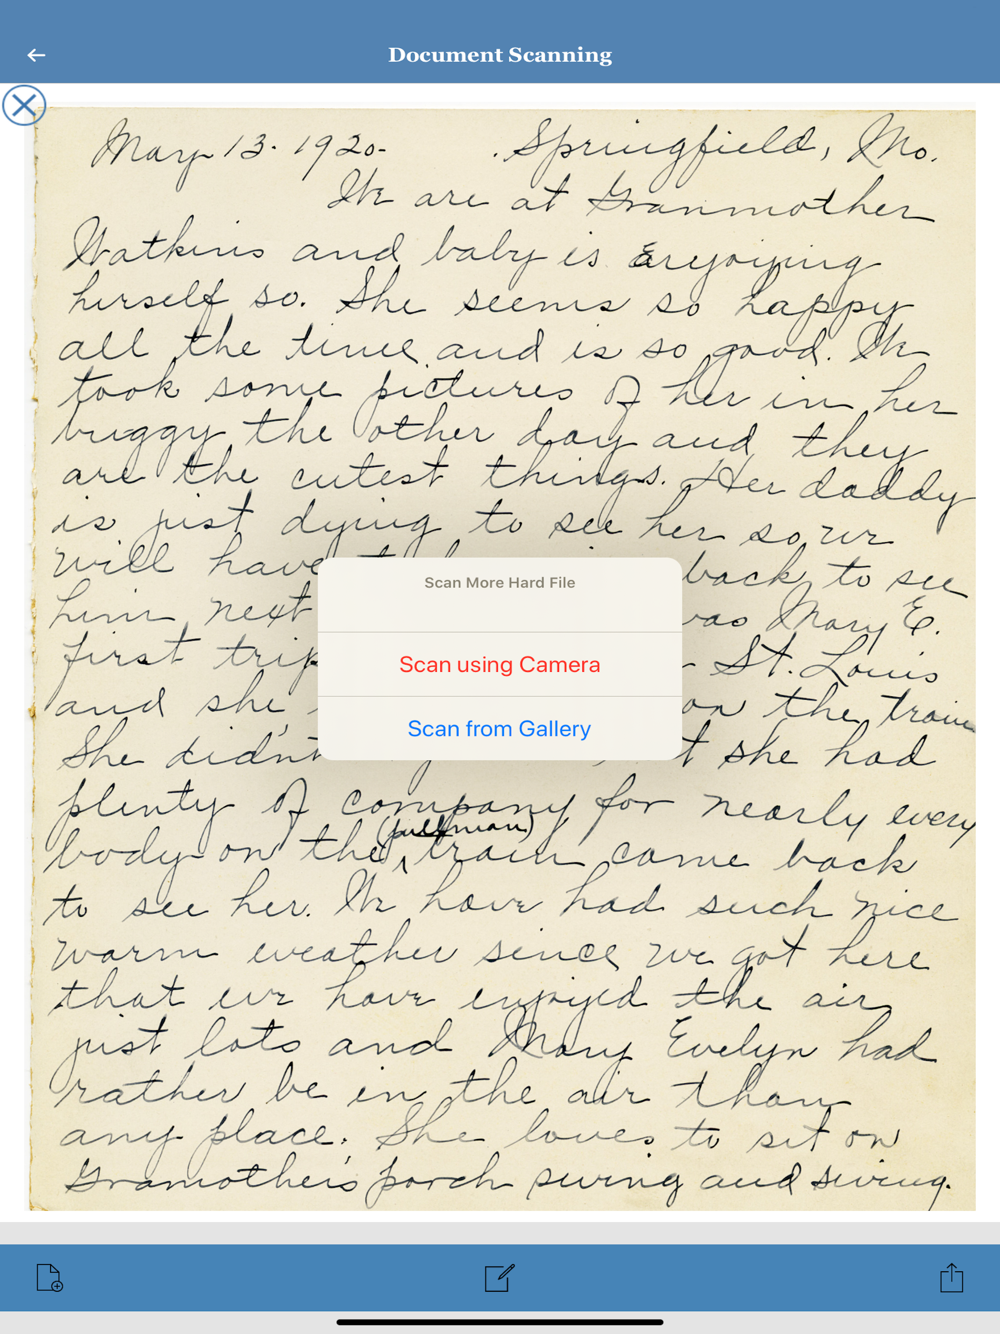 Document Scanning
May 13. 1920- Springfield, Mo.
We are at Granmother
Watkins and baby is enjoying
herself so. She seems so happy
all the time and is so good. We
took some pictures of her in her
buggy the other day and they
are the cutest things. Her daddy
is just dying to see her so we
will have back to see
him next was Mary E.
first trip St. Louis
and she on the train
She didn't she had
plenty of company for nearly every
(pullman)
body on the train came back
to see her. We have had such nice
warm weather since we got here
that we have enjoyed the air
just lots and Mary Evelyn had
rather be in the air than
any place. She loves to sit on
Gramother's porch swing and swing.
Scan More Hard File
Scan using Camera
Scan from Gallery